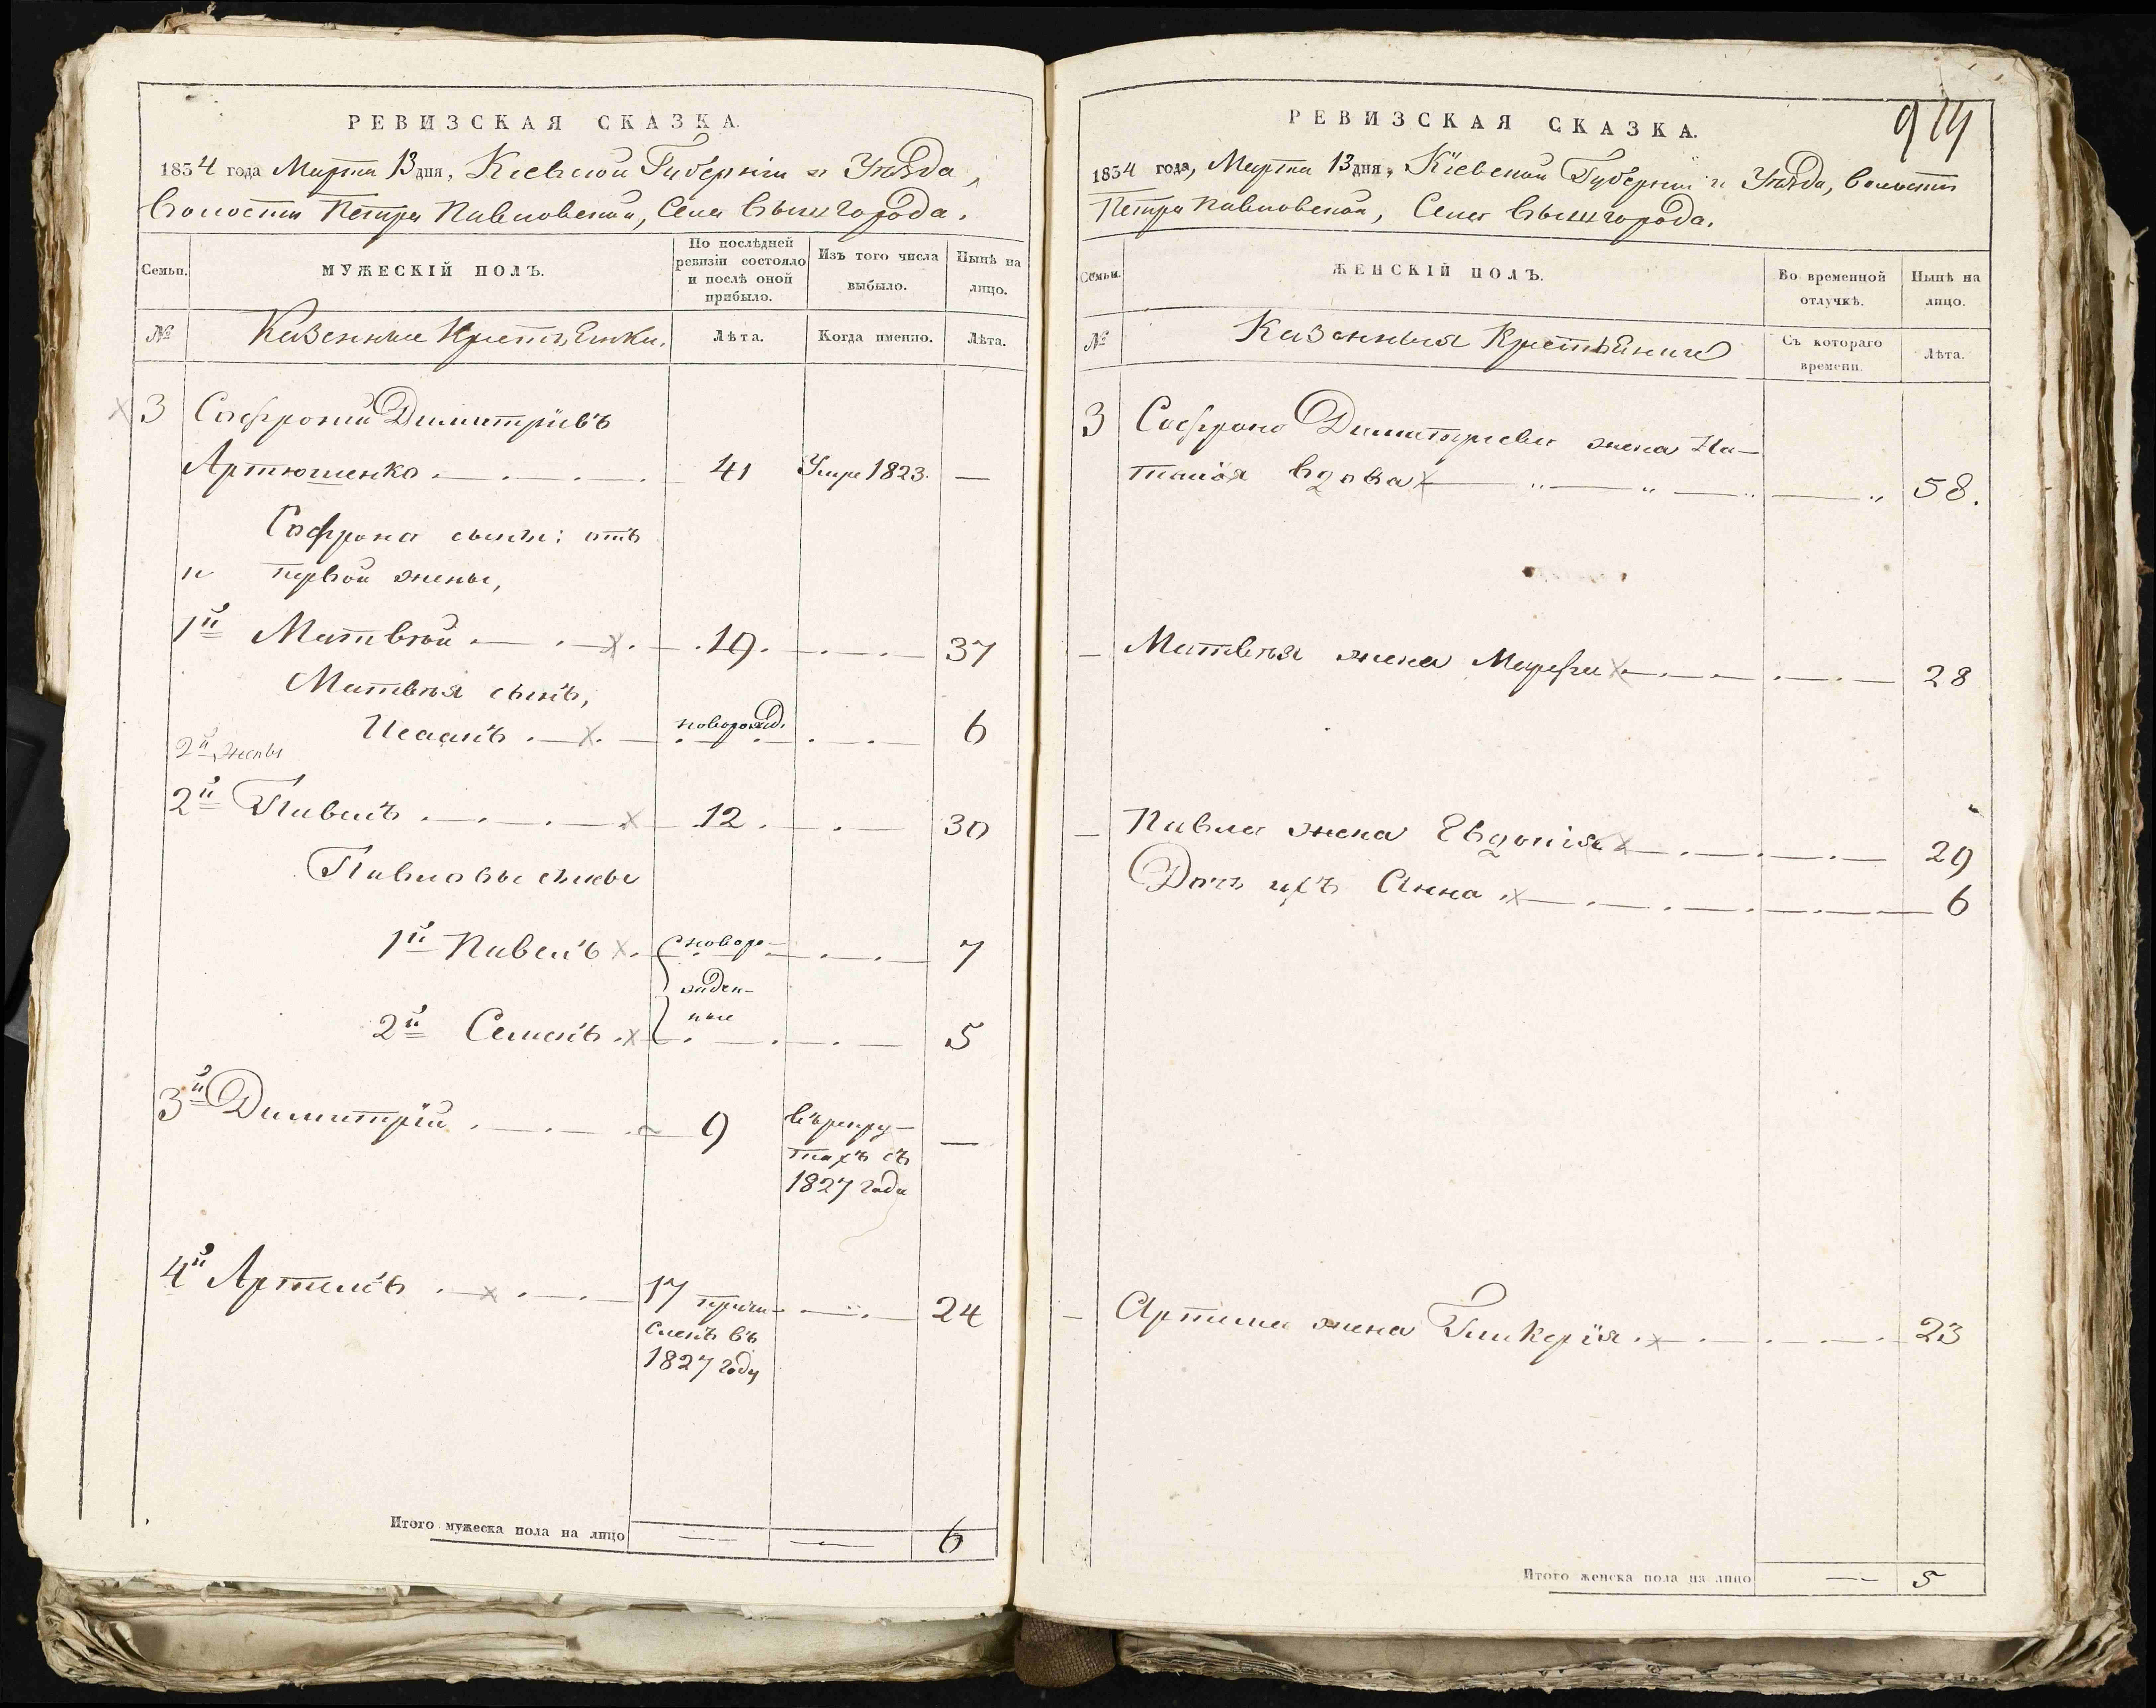 РЕВИЗСКАЯ СКАЗКА.
1834 года Марта 13 дня, Кіевской Губерніи и Уѣзда,
Волости Петра Павловской, Села Вышгорода.
Семьи.
МУЖЕСКІЙ ПОЛЪ.
По послѣдней ревизіи состояло и послѣ оной прибыло.
Изъ того числа выбыло.
Нынѣ на лицо.
№
Казенные Крестьяне.
Лѣта.
Когда именно.
Лѣта.
3 Софроній Димитріевъ
Артюшенко 41 Умре 1823. —
Софрона сыны: отъ
первой жены,
1й Матвѣй 19. 37
Матвѣя сынъ,
Исаакъ новорожд. 6
2й жены
2й Павелъ 12 30
Павловы сыны
1й Павелъ новоро- 7
жден-
ные
2й Семенъ 5
3й Димитрій 9 въ рекру- —
тахъ съ
1827 года
4й Артемъ 17 причи- 24
сленъ въ
1827 году
Итого мужеска пола на лицо — — 6
914
РЕВИЗСКАЯ СКАЗКА.
1834 года, Марта 13 дня, Кіевской Губерніи и Уѣзда, Волости
Петра Павловской, Села Вышгорода.
Семьи.
ЖЕНСКІЙ ПОЛЪ.
Во временной отлучкѣ.
Нынѣ на лицо.
№
Казенныя Крестьянки
Съ котораго времени.
Лѣта.
3 Софрона Димитріева жена На-
талія вдова 58.
— Матвѣя жена Марфа 28
— Павла жена Евдокія 29
Дочь ихъ Анна 6
— Артема жена Гликерія 23
Итого женска пола на лицо — 5